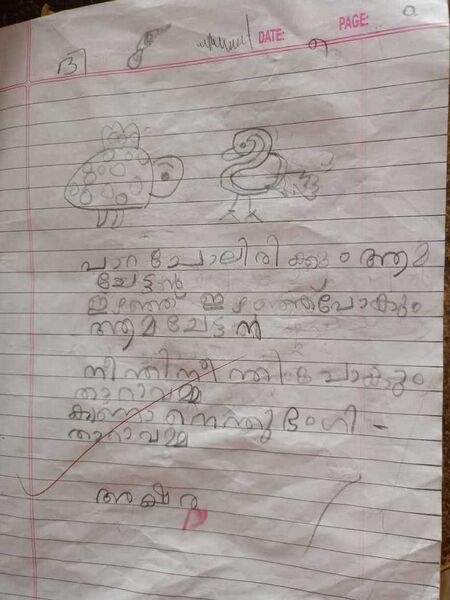 DATE: PAGE:
പാറ പോലിരിക്കും ആമ
ചേട്ടൻ
ഇഴഞ്ഞ് ഇഴഞ്ഞ്പോകും
ആമ ചേട്ടൻ
നീന്തിനീന്തി പോകും
താറാവമ്മ
കാണാനെന്തു ഭംഗി -
താറാവമ്മ